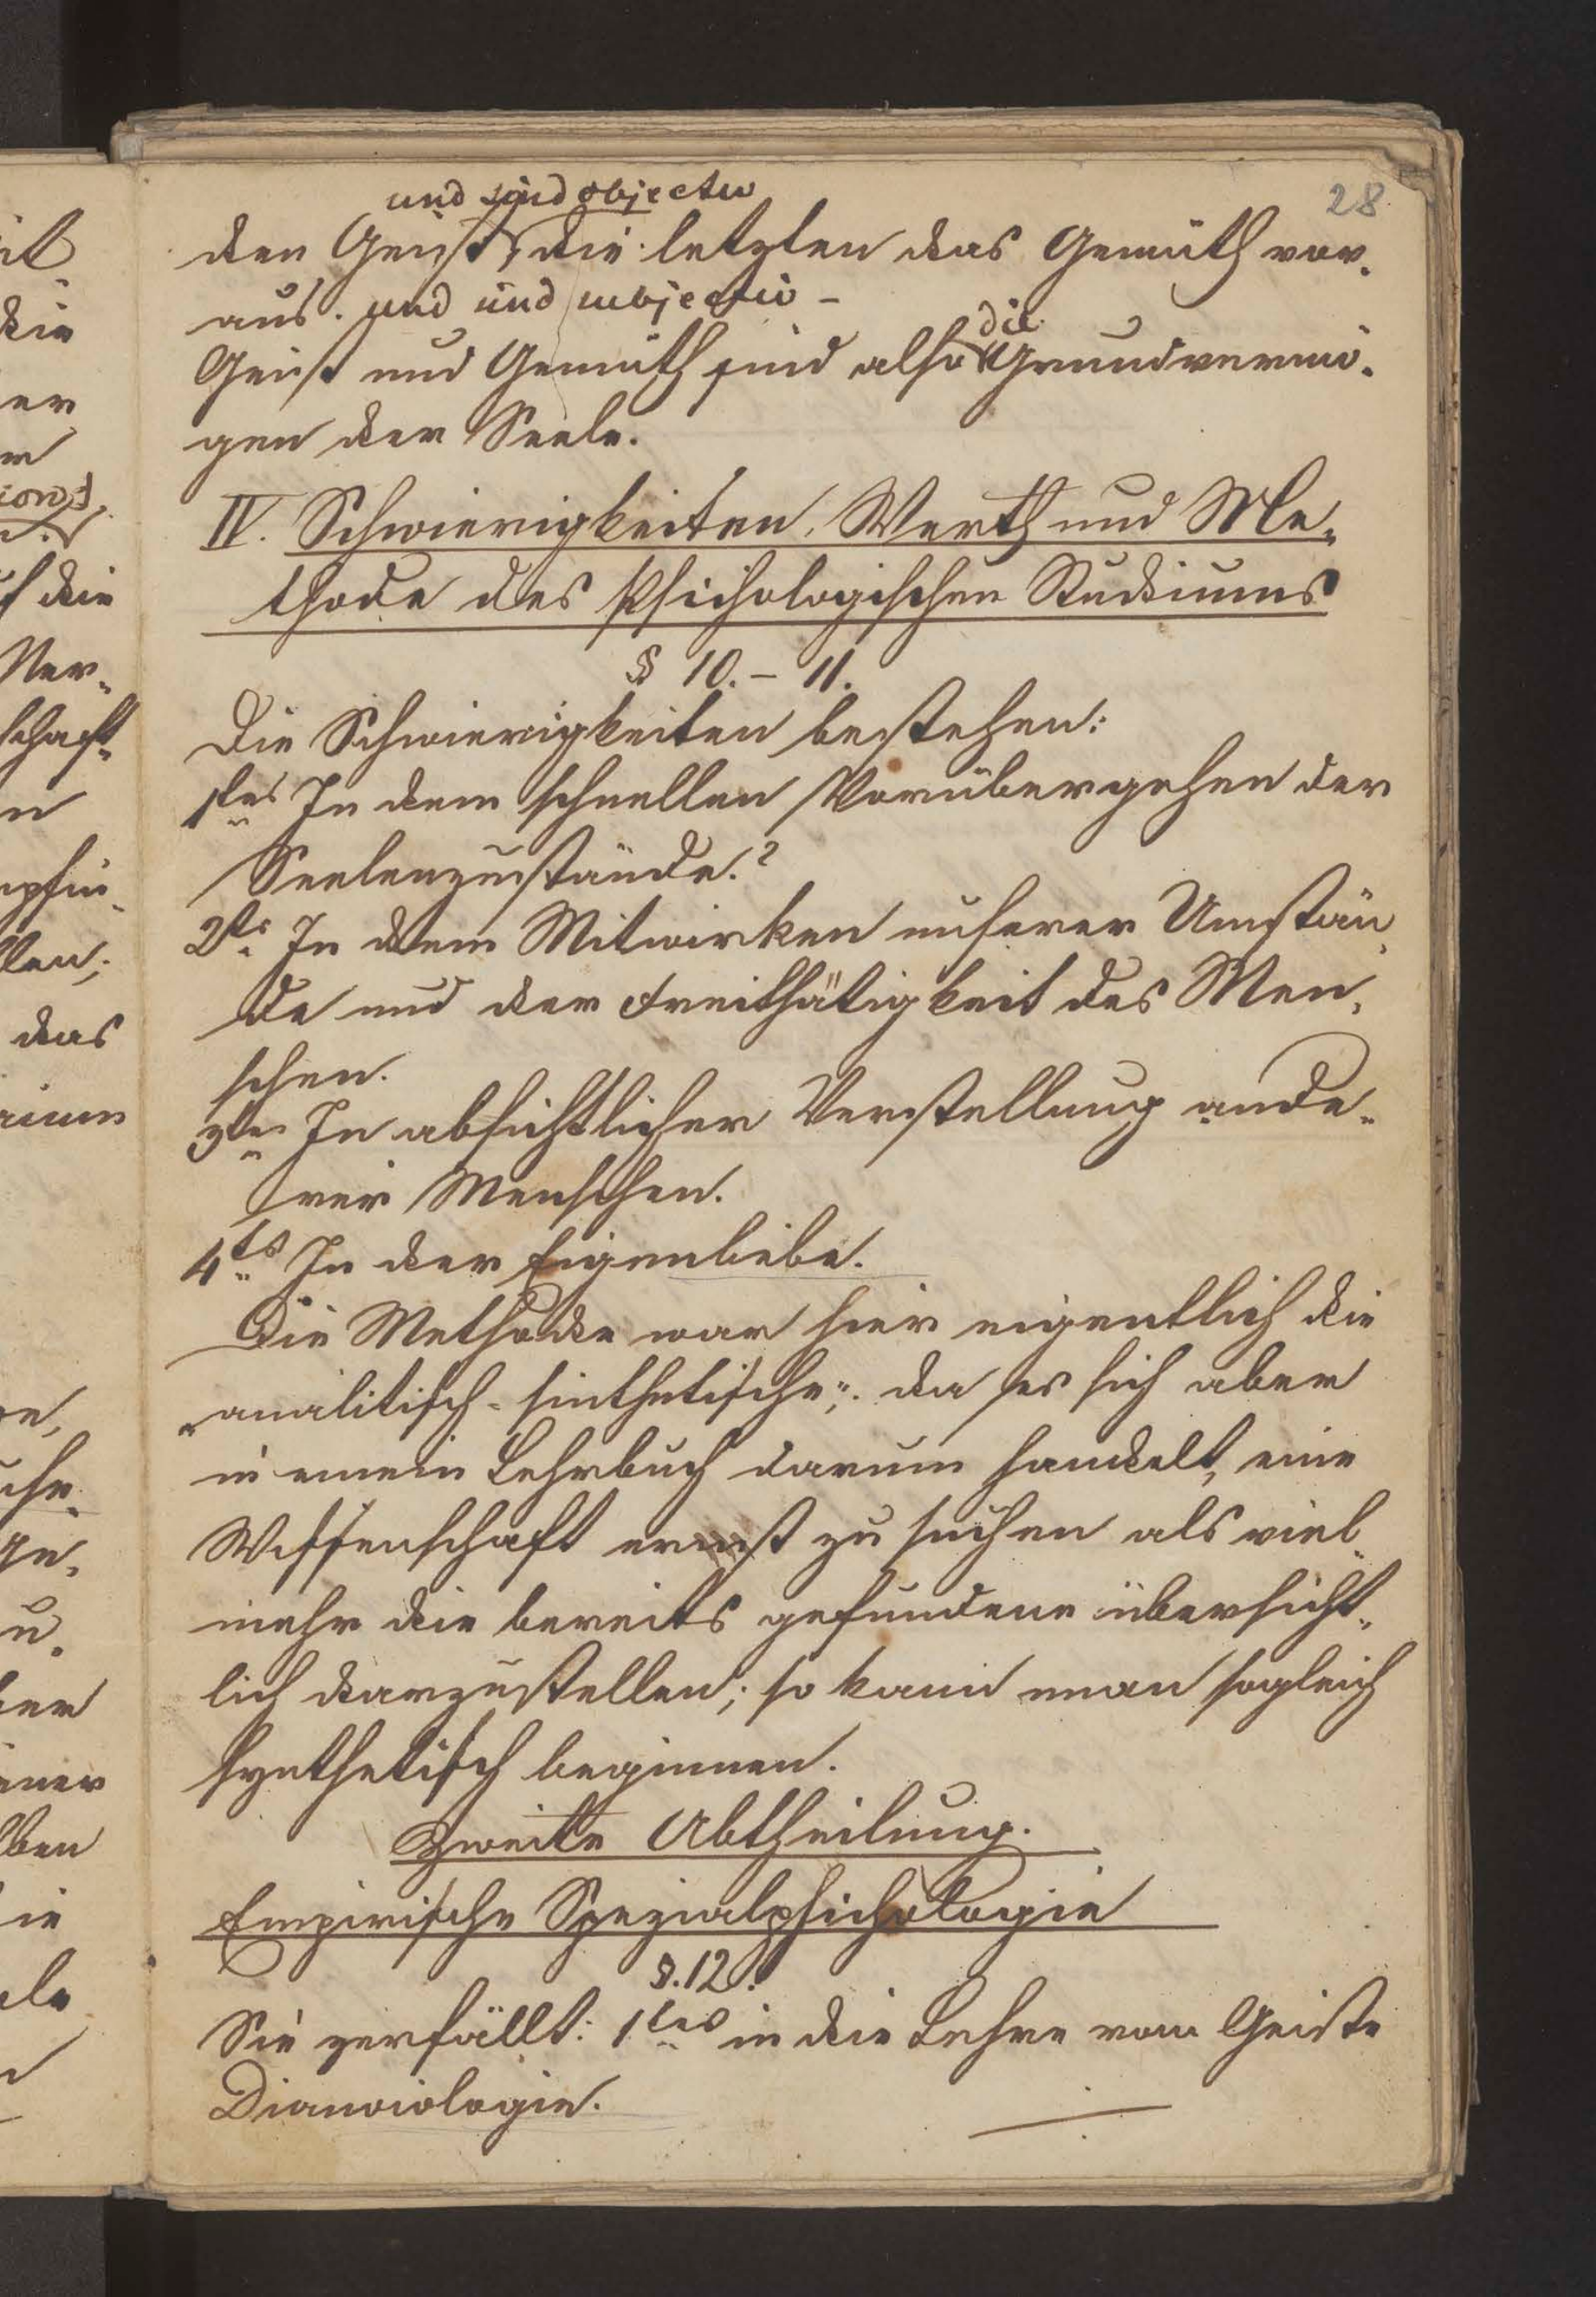 28
und sind objectiv
den Geist, die letzten das Gemüth vor-
aus. und sind subjectiv –
die
Geist und Gemüth sind also Grundvermö-
gen der Seele.
IV. Schwierigkeiten, Werth und Me-
thode des Psichologischen Studiums
§ 10. – 11.
Die Schwierigkeiten bestehen:
1tes In dem schnellen Vorübergehen der
Seelenzustände.
2ts In dem Mitwirken unserer Umstän-
de und der Freithätigkeit des Men-
schen.
3tes In absichtlicher Verstellung ande-
rer Menschen.
4ts In der Eigenliebe.
Die Methode war hier eigentlich die
analitisch-sinthetische; da es sich aber
in einem Lehrbuch darum handelt, eine
Wissenschaft ernst zu suchen als viel
mehr die bereits gefundene übersicht-
lich darzustellen; so kann man sogleich
synthetisch beginnen.
Zweite Abtheilung.
Empirische Spezialpsichologie
§. 12.
Sie zerfällt: 1tes in die Lehre vom Geiste
Dianoiologie.